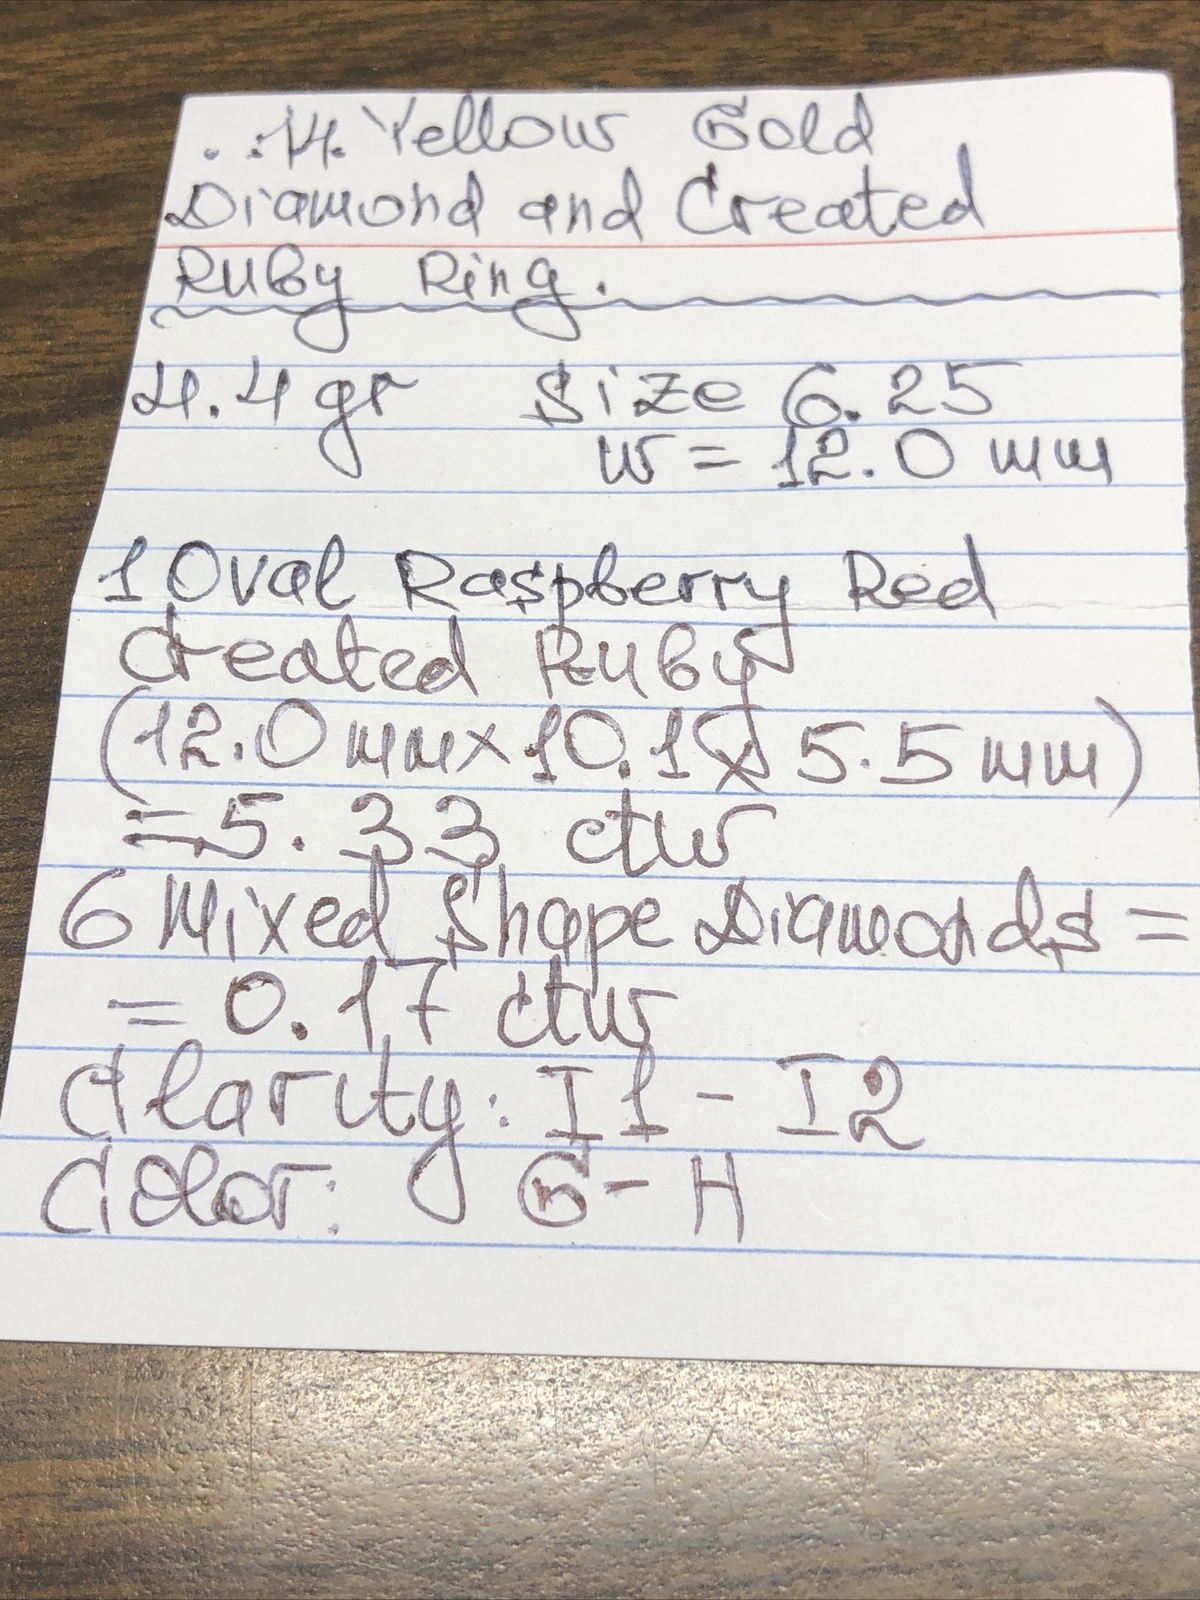 ..:14. Yellow Gold
Diamond and Created
Ruby Ring.
4.4gr Size 6.25
w = 12.0 mm
1 Oval Raspberry Red
Created Ruby
(12.0 mm x 10.1 x 5.5 mm)
= 5.33 ctw
6 Mixed Shape Diamonds =
= 0.17 ctw
Clarity: I1 - I2
Color: G - H